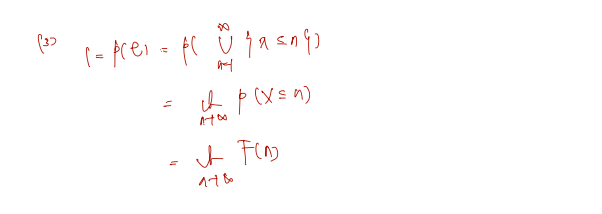 (3) 1 = P(e) = P( ∞ ∪ n=1 {x ≤ n})
= lim n→∞ P(X ≤ n)
= lim n→∞ F(n)